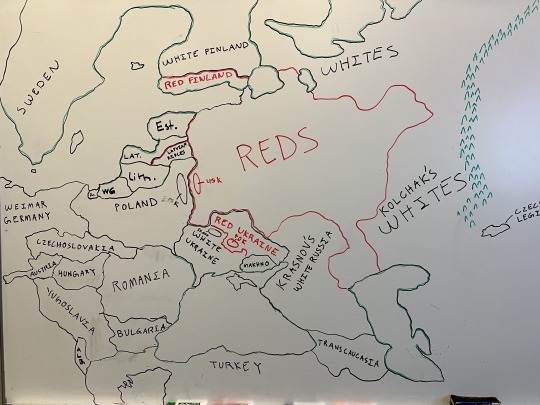 WHITE FINLAND
WHITES
SWEDEN
RED FINLAND
Est.
REDS
LATVIAN
RIFLES
LAT.
Lith.
WG
WEIMAR
GERMANY
POLAND
KOLCHAK'S
WHITES
CZECH
LEGI
RED UKRAINE
WHITE
UKRAINE
CZECHOSLOVAKIA
MAKHNO
KRASNOV'S
WHITE RUSSIA
AUSTRIA
HUNGARY
ROMANIA
YUGOSLAVIA
BULGARIA
TRANSCAUCASIA
ALB
TURKEY